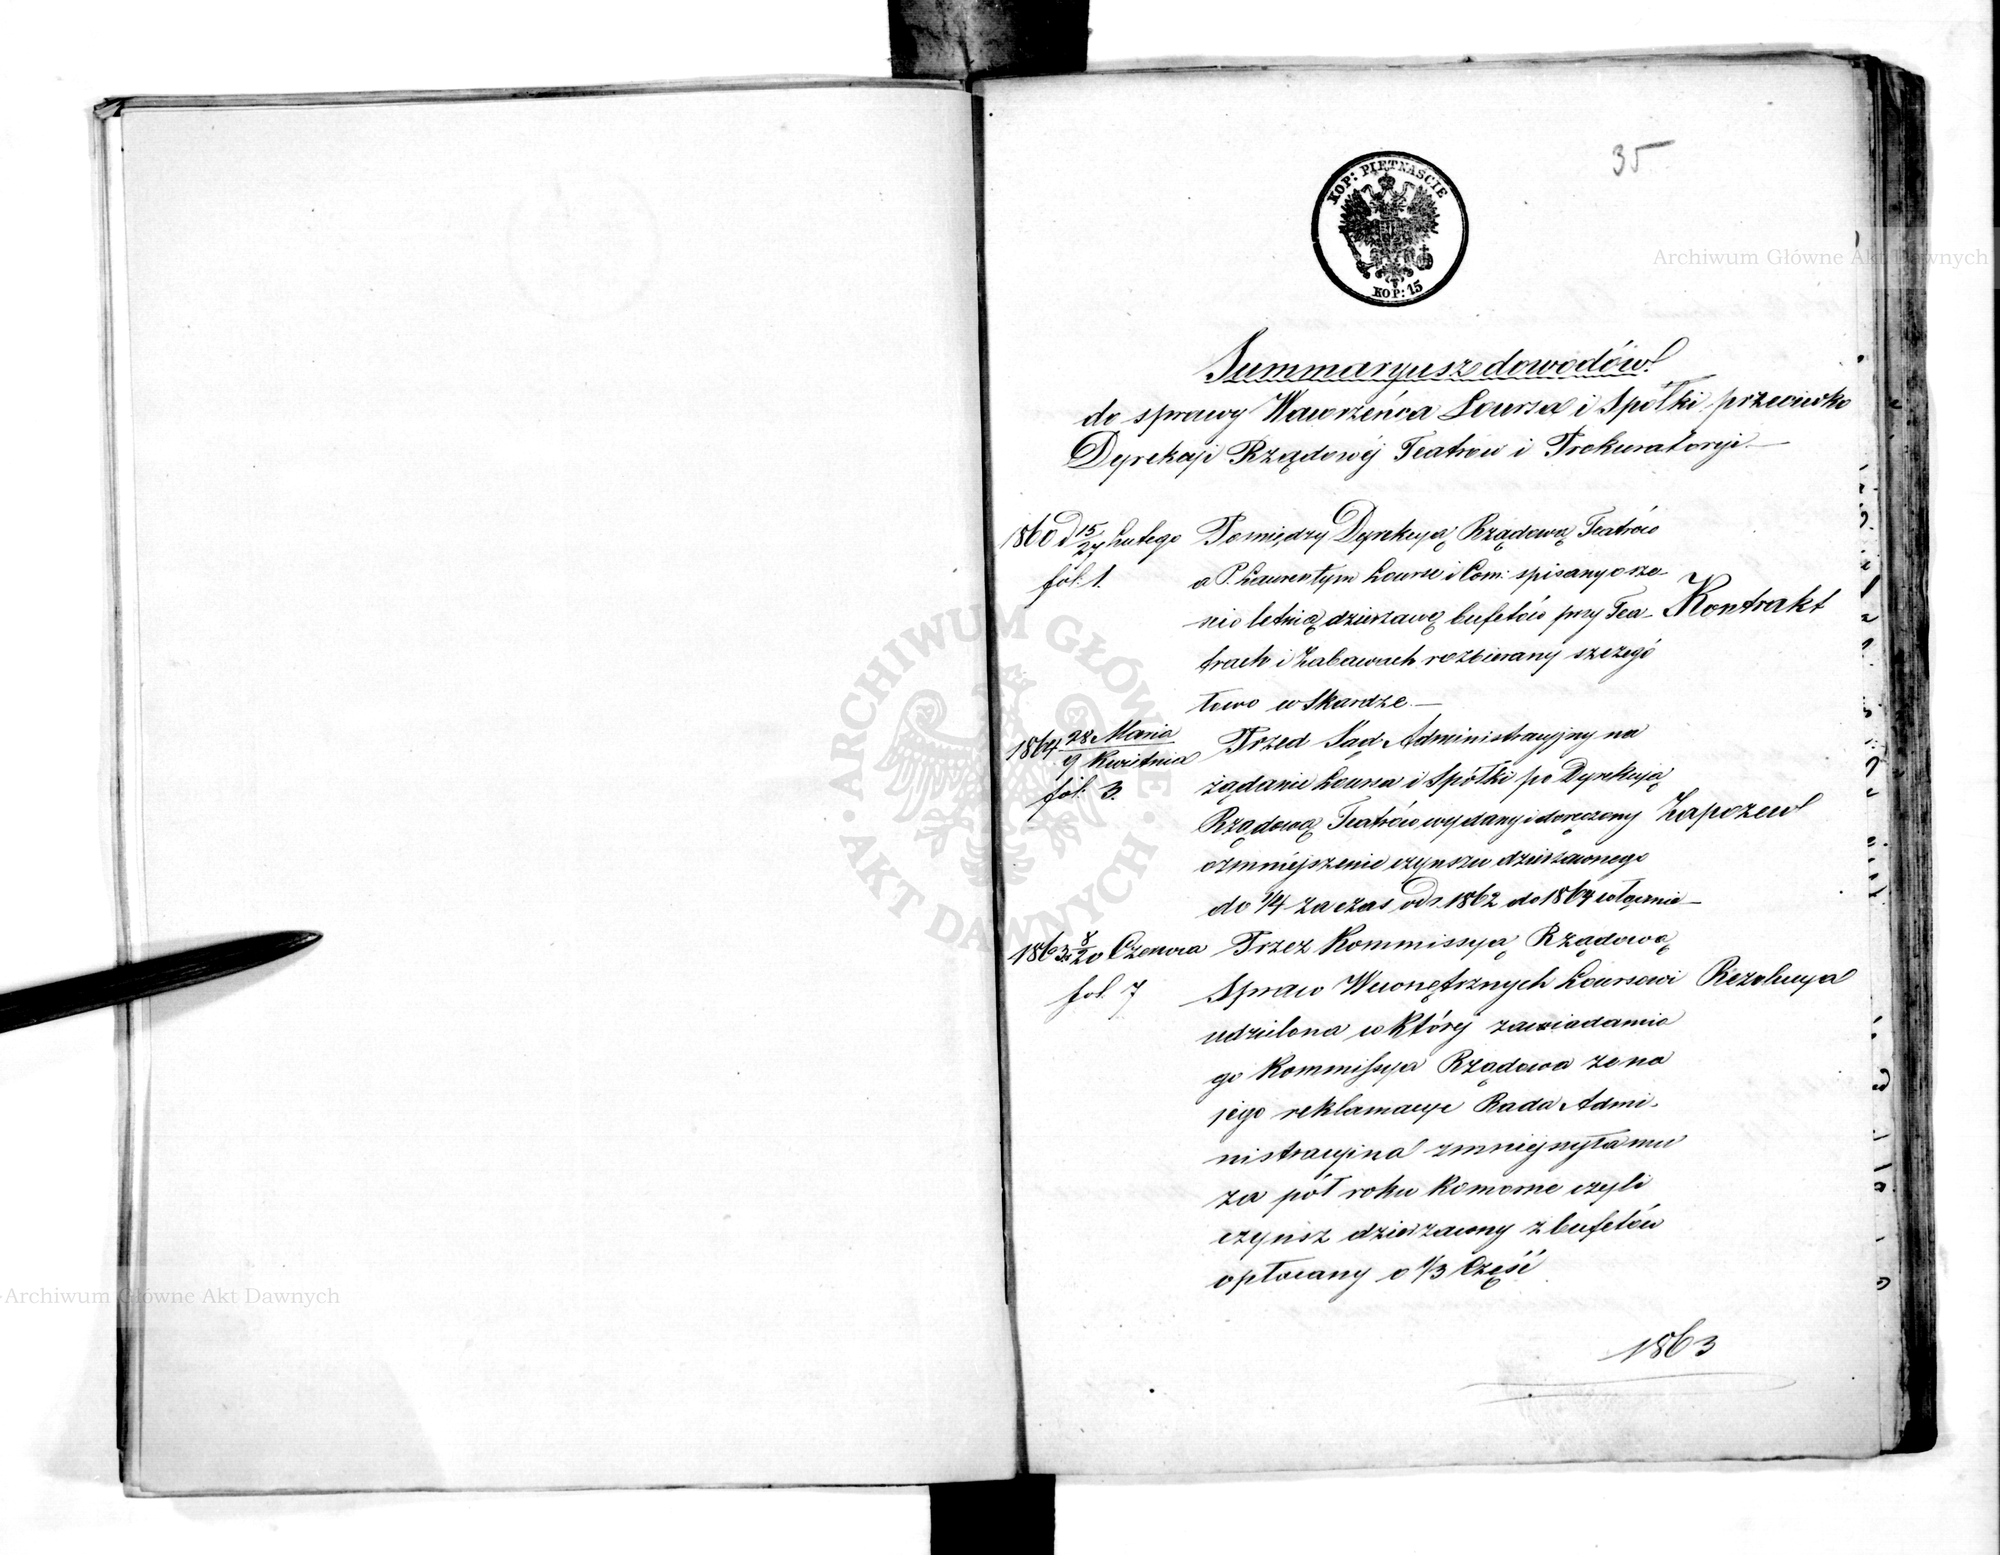 35
KOP: PIĘTNAŚCIE
KOP: 15
Summaryusz dowodów
do sprawy Wawrzeńca Loursa i Spółki przeciwko
Dyrekcji Rządowéj Teatrów i Prokuratoryi.—
1860 d 15/27 Lutego
fol. 1.
Pomiędzy Dyrekcyą Rządową Teatrów
a P. Laurentym Lourse i Com: spisany o sze-
ścio letnią dzierzawę bufetów przy Tea- Kontrakt
trach i Zabawach rozbierany szczegó
łowo w Skardze.—
1864 28 Marca
9 Kwietnia
fol. 3.
Przed Sąd Administracyjny na
żądanie Loursa i Spółki po Dyrekcją
Rządową Teatrów wydany i doręczony Zapozew
o zmniejszenie czynszu dzierzawnego
do 1/4 za czas od r. 1862 do 1864 włącznie—
1863 8/20 Czerwca
fol. 7
Przez Kommissyą Rządową
Spraw Wewnętrznych Loursowi Rezolucya
udzielona w któréj zawiadamia
go Kommissya Rządowa że na
jego reklamacye Rada Admi-
nistracyjna zmniejszyła mu
za pół roku komorne czyli
czynsz dzierzawny z bufetów
opłacany o 1/3 Część
1863
ARCHIWUM GŁÓWNE AKT DAWNYCH
Archiwum Główne Akt Dawnych
Archiwum Główne Akt Dawnych